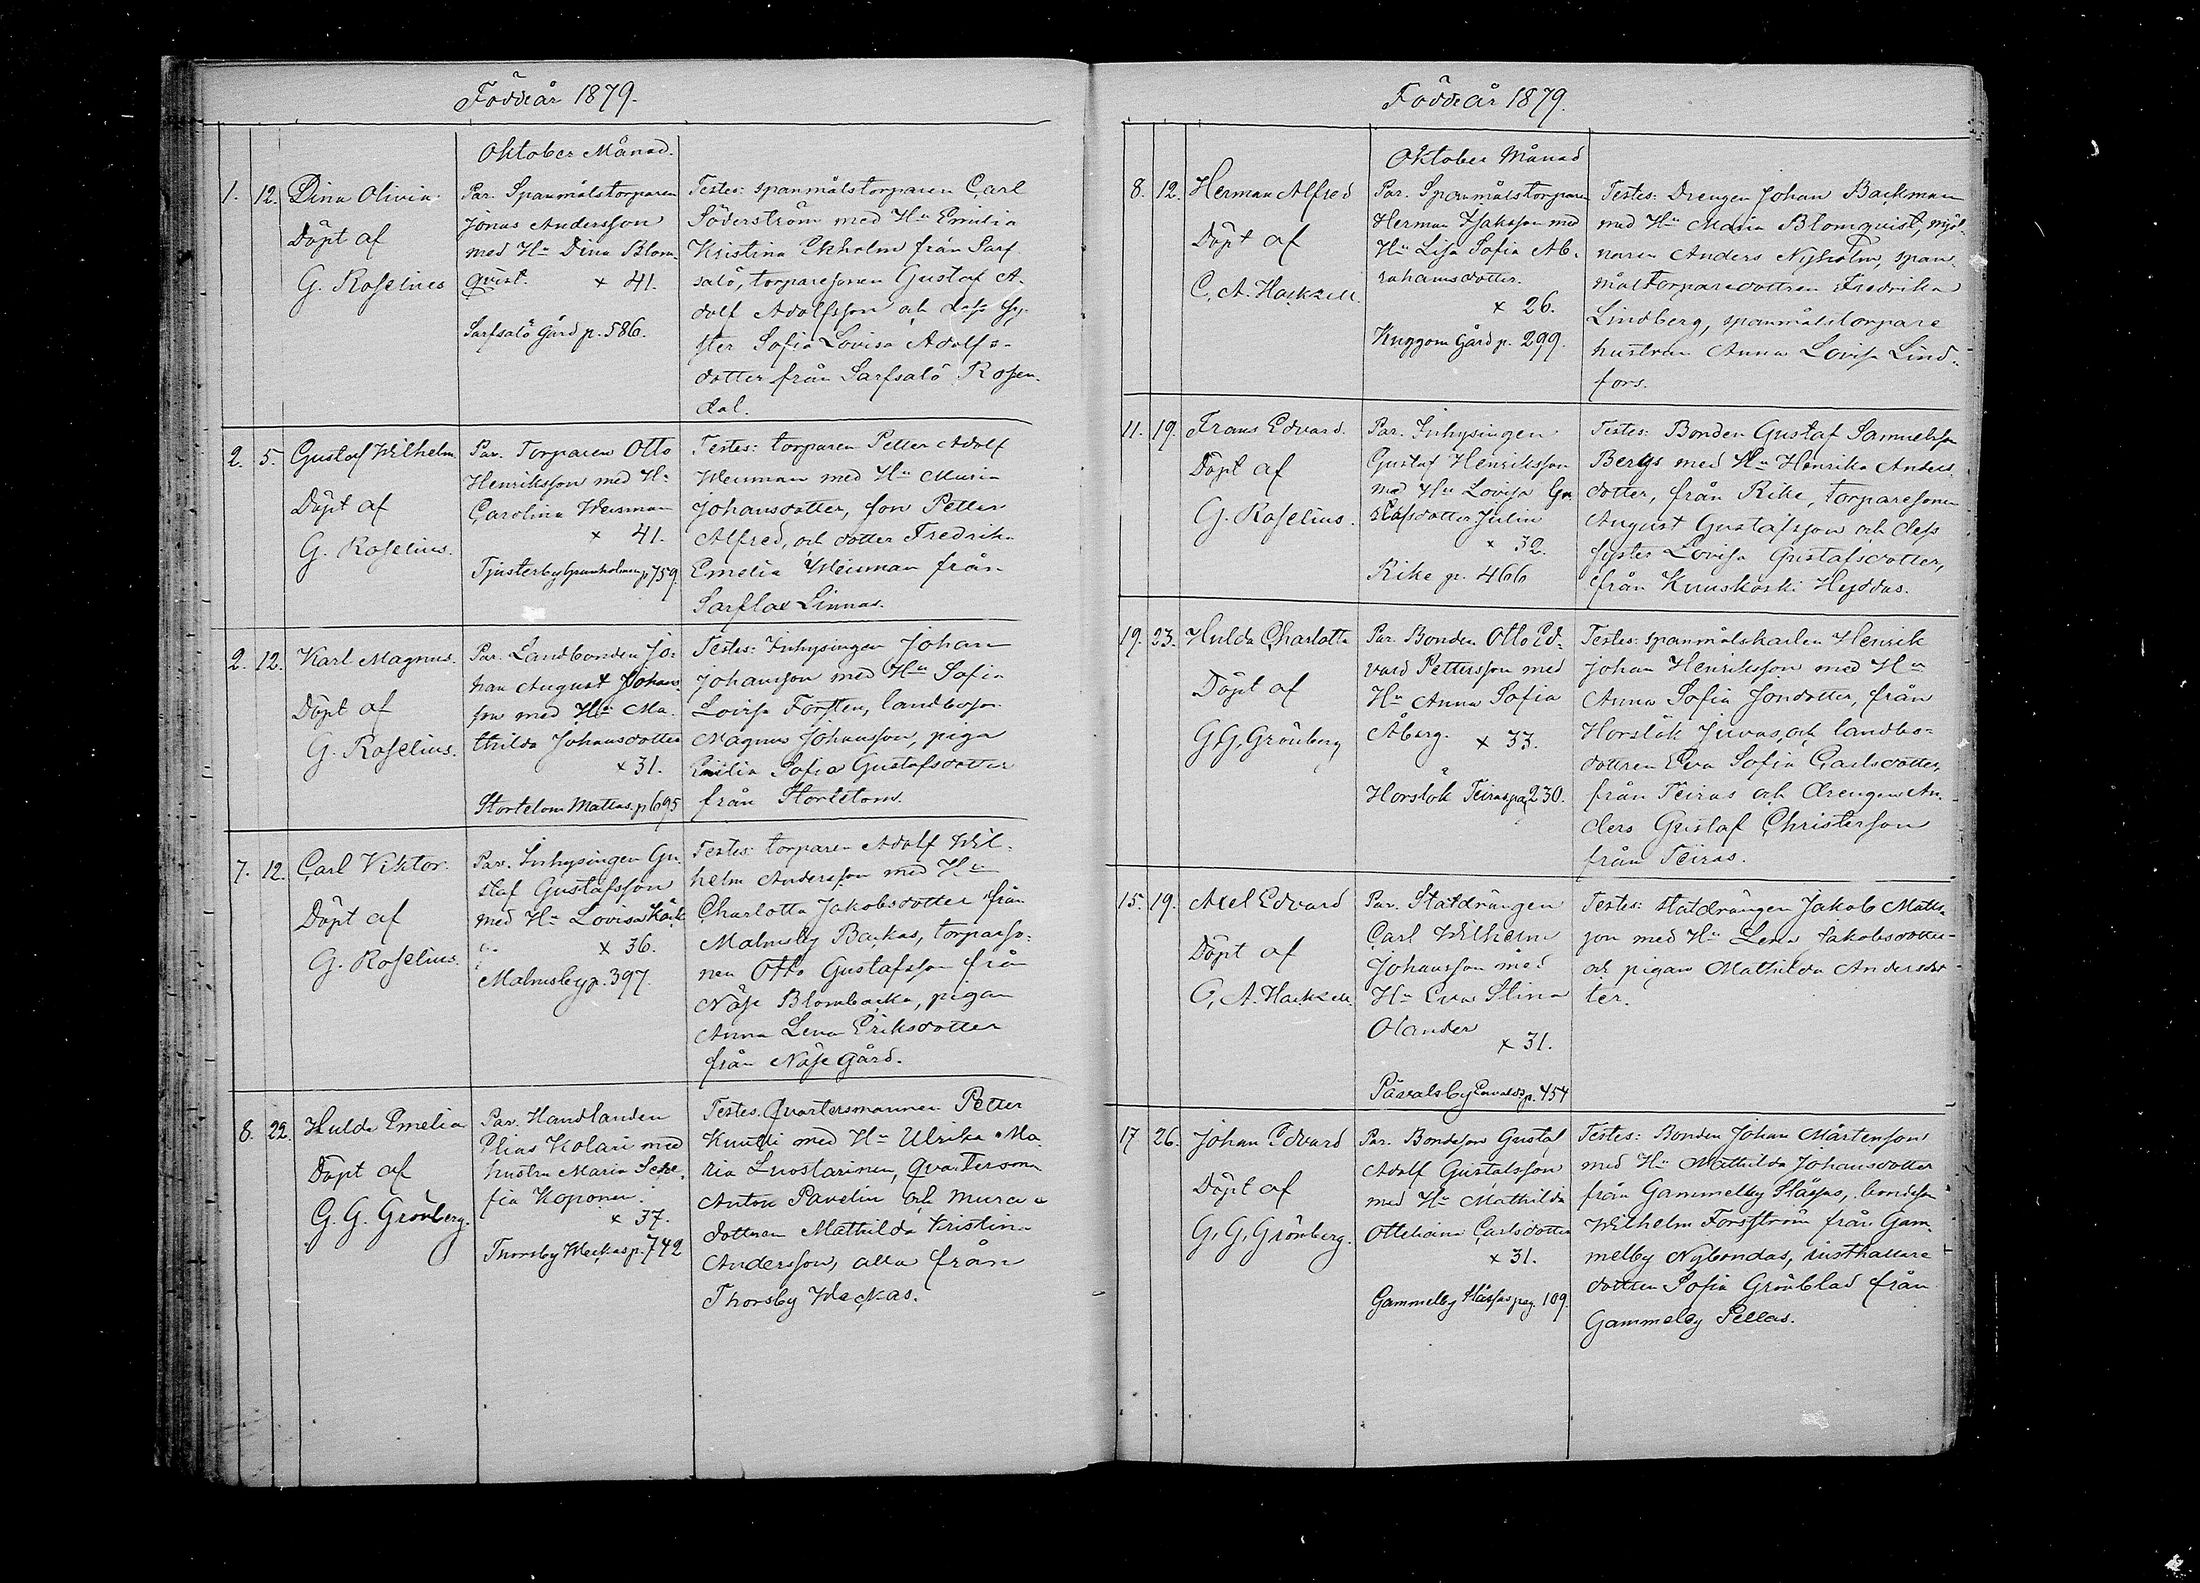 Föddeår 1879.
Oktober Månad.
1. 12. Dina Olivia
Döpt af
G. Roselius
Par. Spanmålstorparen
Jonas Andersson
med Hu Dina Blom-
quist. x 41.
Sarfsalö Gård p. 586.
Testes: spanmålstorparen Carl
Söderström med Hu Emilia
Kristina Ekholm från Sarf
salö, torparesonen Gustaf A-
dolf Adolfsson och dess sy-
ster Sofia Lovisa Adolfs-
dotter från Sarfsalö Rosen-
dal.
2. 5. Gustaf Wilhelm
Döpt af
G. Roselius.
Par. Torparen Otto
Henriksson med Hu
Carolina Weisman
x 41.
Tjusterby Granholmen p 759.
Testes: torparen Petter Adolf
Weisman med Hu Maria
Johansdotter, son Petter
Alfred, och dotter Fredrik-
Emelia Weisman från
Sarflax Linnas.
2. 12. Karl Magnus.
Döpt af
G. Roselius.
Par. Landbonden Jo-
han August Johans-
son med Hu Ma-
thilda Johansdotter
x 31.
Hortelom Mattas. p 695
Testes: Inhysingen Johan
Johansson med Hu Sofia
Lovisa Forsten, landboson
Magnus Johansson, piga
Emilia Sofia Gustafsdotter
från Hortelom.
7. 12. Carl Viktor.
Döpt af
G. Roselius.
Par. Inhysingen Gu-
staf Gustafsson
med Hu Lovisa
x 36.
Malmsby p. 397.
Testes: torparen Adolf Wil-
helm Andersson med Hu
Charlotta Jakobsdotter från
Malmsby Backas, torparso-
nen Otto Gustafsson från
Näse Blombacka, pigan
Anna Lena Eriksdotter
från Näse gård.
8. 22. Hulda Emelia
Döpt af
G. G. Grönberg.
Par. Handlanden
Elias Kolari med
hustru Maria So-
fia Koponen.
x 37.
Thorsby Weckas p. 742
Testes. Qvartersmannen Petter
med Hu Ulrika Ma-
ria Luostarinen, Qvartersm
Anton Pavelin och murare
dottren Mathilda Kristina
Andersson, alla från
Thorsby Weckas.
Föddeår 1879.
Oktober Månad
8. 12. Herman Alfred
Döpt af
C. A. Hackzell
Par. Spanmålstorparen
Herman Isaksson med
Hu Lisa Sofia Ab-
rahamsdotter.
x 26.
Kuggom Gård p. 299.
Testes: Drengen Johan Backman
med Hu Maria Blomqvist, mjöl-
naren Anders Nyholm, span-
målstorparedottren Fredrika
Lindberg, spanmålstorpare
hustrun Anna Lovisa Lind-
fors.
11. 19. Frans Edvard.
Döpt af
G. Roselius.
Par. Inhysingen
Gustaf Henriksson
med Hu Lovisa Gu
stafsdotter Julin
x 32.
Rike p. 466
Testes: Bonden Gustaf Samuelsson
Bergs med Hu Henrika Anders
dotter, från Rike, torparesonen
August Gustafsson och dess
syster Lovisa Gustafsdotter,
från Kuuskoski Heyddas.
19. 23. Hulda Charlotta
Döpt af
G. G. Grönberg
Par. Bonden Otto Ed-
vard Pettersson med
Hu Anna Sofia
Åberg. x 33.
Horslök Teiras pag 230.
Testes: spanmålskarlen Henrik
Johan Henriksson med Hu
Anna Sofia Jondotter, från
Horslök Juvas, och landbo-
dottren Eva Sofia Carlsdotter,
från Teiras och drengen An-
ders Gustaf Christerson
från Teiras.
15. 19. Axel Edvard
Döpt af
C. A. Hackzell
Par. Statdrängen
Carl Wilhelm
Johansson med
Hu Eva Stina
Olander
x 31.
Påvalsby p. 454
Testes: statdrängen Jakob Matts-
son med Hu Lena Jakobsdotter
och pigan Mathilda Andersdot-
ter.
17 26. Johan Edvard
Döpt af
G. G. Grönberg.
Par. Bondeson Gustaf
Adolf Gustafsson
med Hu Mathilda
Ottiliana Carlsdotter
x 31.
Gammelby Slässas pag. 109.
Testes: Bonden Johan Mårtenson
med Hu Mathilda Johansdotter
från Gammelby Slässas, bondeson
Wilhelm Forsström från Gam-
melby Nybondas, rusthållare
dottren Sofia Grönblad från
Gammelby Pellas.